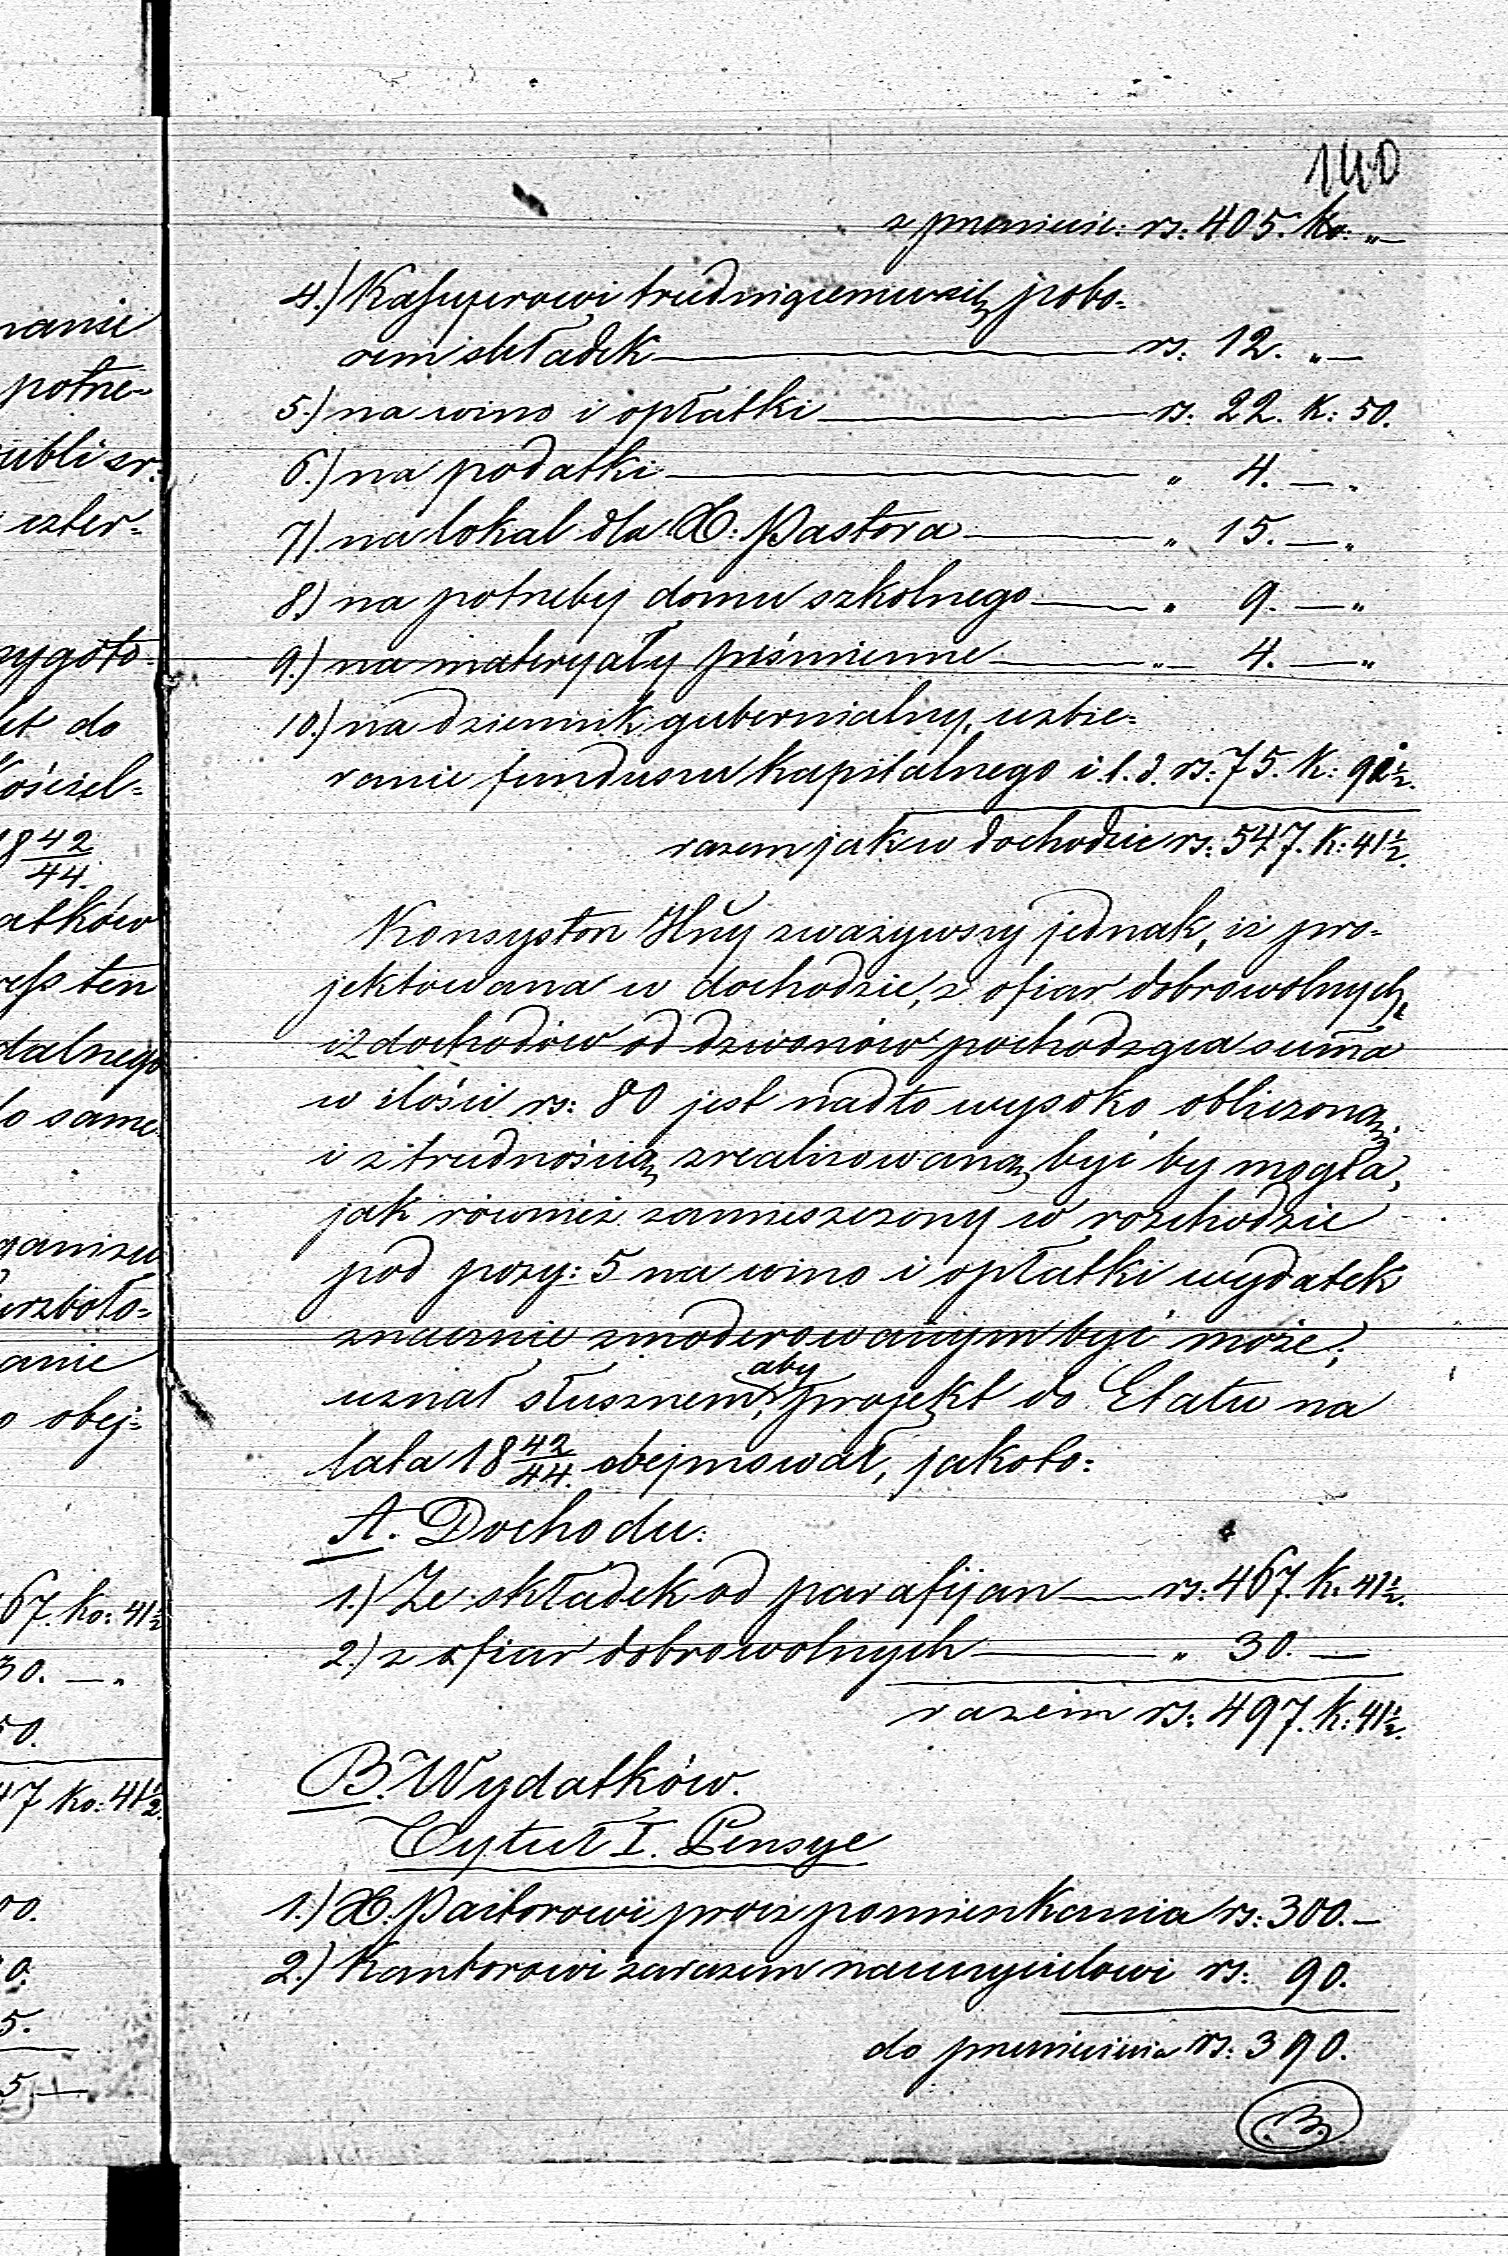 140
z przeniesie: rs: 405. ko: „—
4.) Kassyerowi trudniącemu się pobo-
rem składek — rs: 12. „—
5.) na wino i opłatki — rs. 22. K: 50.
6.) na podatki — „ 4. — „
7). na lokal dla X: Pastora — „ 15. — „
8.) na potrzeby domu szkolnego — „ 9. — „
9.) na materyały piśmienne — „ 4. — „
10.) na dziennik gubernialny, uzbie-
ranie funduszu kapitalnego i. t. d. rs: 75. K: 91½.
razem jak w dochodzie rs: 547. K: 41½.
Konsystorz Jlny zważywszy jednak, iż pro-
jektowana w dochodzie, z ofiar dobrowolnych,
i z dochodów od dzwonów pochodząca suma
w ilości rs: 80 jest nadto wysoko obliczoną,
i z trudnością zrealizowaną być by mogła,
jak również zamieszczony w rozchodzie
pod pozy: 5 na wino i opłatki wydatek
znacznie zmoderowanym być może;
uznał słusznem, aby projekt do Etatu na
lata 18 42/44. obejmował, jakoto:
A. Dochodu:
1.) Ze składek od parafijan — rs: 467. K: 41½.
2.) z ofiar dobrowolnych — „ 30. —
razem rs: 497. K: 41½.
B. Wydatków.
Tytuł I. Pensye
1.) X: Pastorowi prócz pomieszkania rs: 300. —
2.) Kantorowi zarazem nauczycielowi rs: 90.
do przeniesienia rs: 390.
nanie
potrze-
rubli sr:
czter-
rzygoto-
et do
Kościel-
18 42/44.
atków
ress ten
talnego
to same
ganizu
Wierzboło-
anie
o obej-
67. ko: 41½
30. — „
50.
47 ko: 41½.
00.
0.
5.
5. —